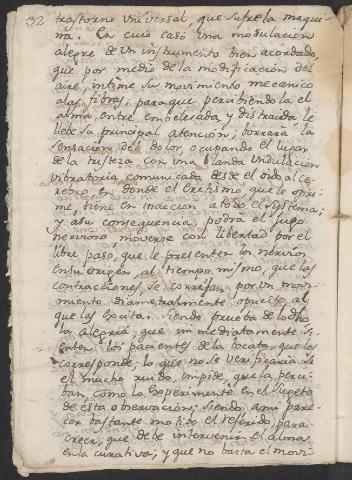 32 trastorno universal, que sufre la maqui
na. En cuio casó una modulacion
alegre de un instrumento bien acordado,
que por medio de la modificación del
aire, intime su movimiento mecanico
alas fibras; paraque percibiendola el
alma entre embelesada, y distraida le
llebe su principal atención; borrará la
sensacion del dolor, ocupando el lugar
de la tristeza con una blanda undulacion
vibratoria comunicada desde el oido al ce-
rebro en donde el eretismo que le opri-
me, tiene en inaccion atodo el sistema;
y asu consequencia, podrá el jugo
nervioso moverse con libertad por el
libre paso, que le presenten los nervios
ensu origen, al tiempo mismo, que las
contracciones se corrijan por un movi-
miento diametralmente opuesto al
que las excita. Siendo prueba de lo dho
la alegria, que inmediatamente si-
enten los pacientes de la tocata, que les
corresponde; lo que no se verificaria si
el mucho ruido, impide, que la perci-
ban, como lo experimenté en el sugeto
de esta observacion; siendo ami pare-
cer bastante motivo el referido, para
creer, que debe intervenir el alma
en la curativa; y que no basta el movi-